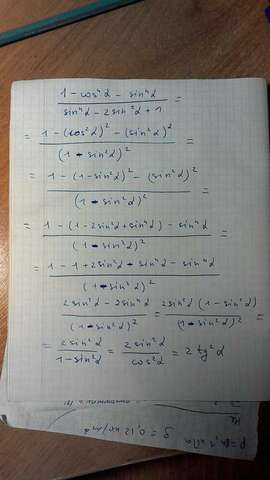 (1 - cos⁴α - sin⁴α) / (sin⁴α - 2sin²α + 1) =
= (1 - (cos²α)² - (sin²α)²) / (1 - sin²α)² =
= (1 - (1-sin²α)² - (sin²α)²) / (1 - sin²α)² =
= (1 - (1-2sin²α+sin⁴α) - sin⁴α) / (1 - sin²α)² =
= (1 - 1 + 2sin²α - sin⁴α - sin⁴α) / (1 - sin²α)² =
(2sin²α - 2sin⁴α) / (1 - sin²α)² = (2sin²α (1 - sin²α)) / (1 - sin²α)² =
= 2sin²α / (1 - sin²α) = 2sin²α / cos²α = 2 tg²α